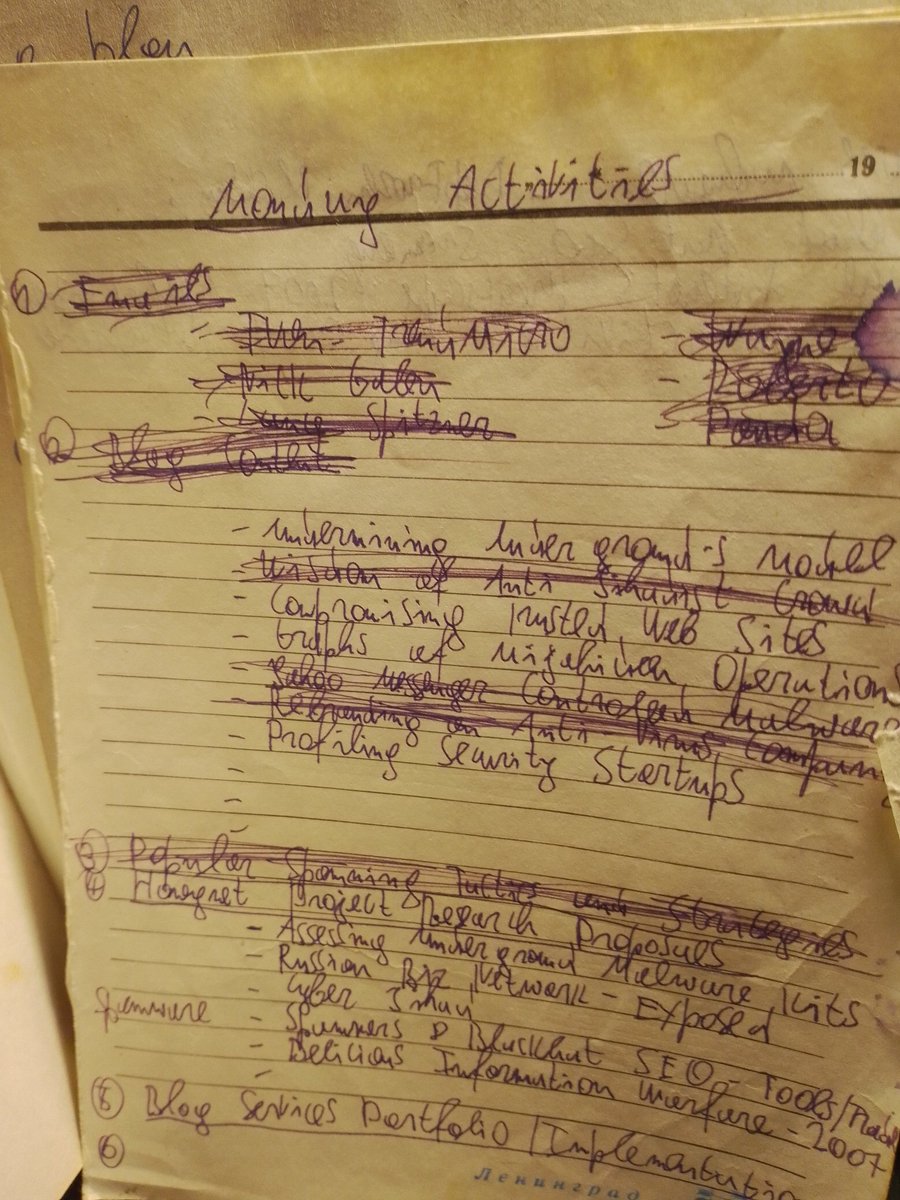 blem
19
Monday Activities
1 Emails
- Ivan - TrendMicro - Wayne
- Nick - Roberto
- Lance Spitzner Panda
2 Blog Content
- Undermining Underground's Model
- Wisdom of Anti Crowd
- Compromising Trusted Web Sites
- Graphs of Operations
- Messenger Controlled Malware
- Rebranding an Anti-Virus Company
- Profiling Security Startups
-
-
3 Popular Spamming Tactics and Strategies
4 Honeynet Project Research Proposals
- Assessing Underground Malware Kits
- Russian Biz Network - Exposed
- Cyber Jihad
- Spammers & Blackhat SEO - Tools/
- Delicious Information Warfare - 2007
-
5 Blog Services Portfolio / Implementatio
6
Ленинград